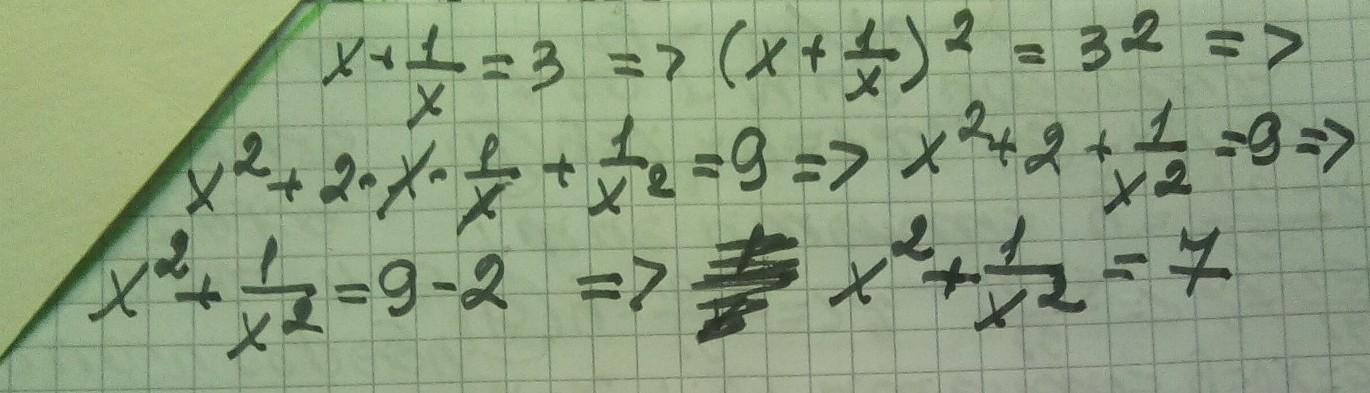 x + 1/x = 3 => (x + 1/x)² = 3² =>
x² + 2 · x · 1/x + 1/x² = 9 => x² + 2 + 1/x² = 9 =>
x² + 1/x² = 9 - 2 => x² + 1/x² = 7